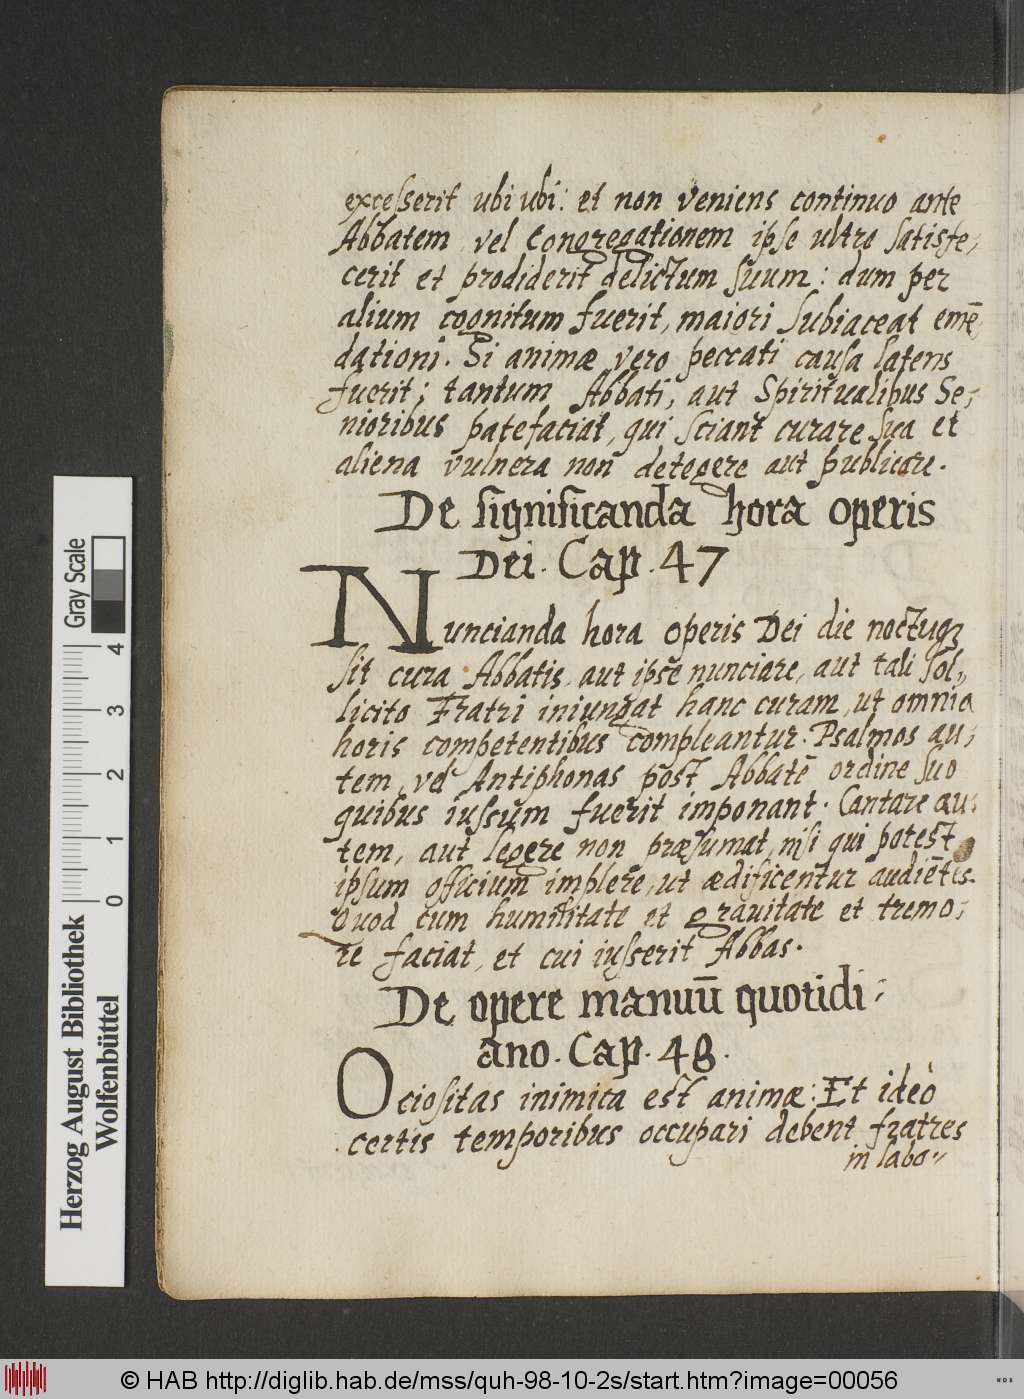 excesserit ubi ubi: et non veniens continuo ante
Abbatem vel Congregationem ipse ultro satisfe,
cerit et prodiderit delictum suum: dum per
alium cognitum fuerit, maiori subiaceat emē
dationi. Si animæ vero peccati causa latens
fuerit; tantum Abbati, aut Spiritualibus Se,
nioribus patefaciat, qui sciant curare sua et
aliena vulnera non detegere aut publicare.
De significanda hora operis
Dei. Cap. 47
Nuncianda hora operis Dei die noctuqꝫ
sit cura Abbatis, aut ipse nunciare, aut tali sol„
licito Fratri iniungat hanc curam, ut omnia
horis competentibus compleantur. Psalmos au,
tem, vel Antiphonas post Abbatē ordine suo
quibus iussum fuerit imponant. Cantare au:
tem, aut legere non præsumat, nisi qui potest
ipsum officium implere, ut ædificentur audiētes.
Quod cum humilitate et gravitate et tremo,
re faciat, et cui iusserit Abbas.
De opere manuū quotidi;
ano. Cap. 48.
Ociositas inimica est animæ: Et ideò
certis temporibus occupari debent fratres
in labo„
Herzog August Bibliothek
Wolfenbüttel
Gray Scale
0 1 2 3 4
© HAB http://diglib.hab.de/mss/quh-98-10-2s/start.htm?image=00056